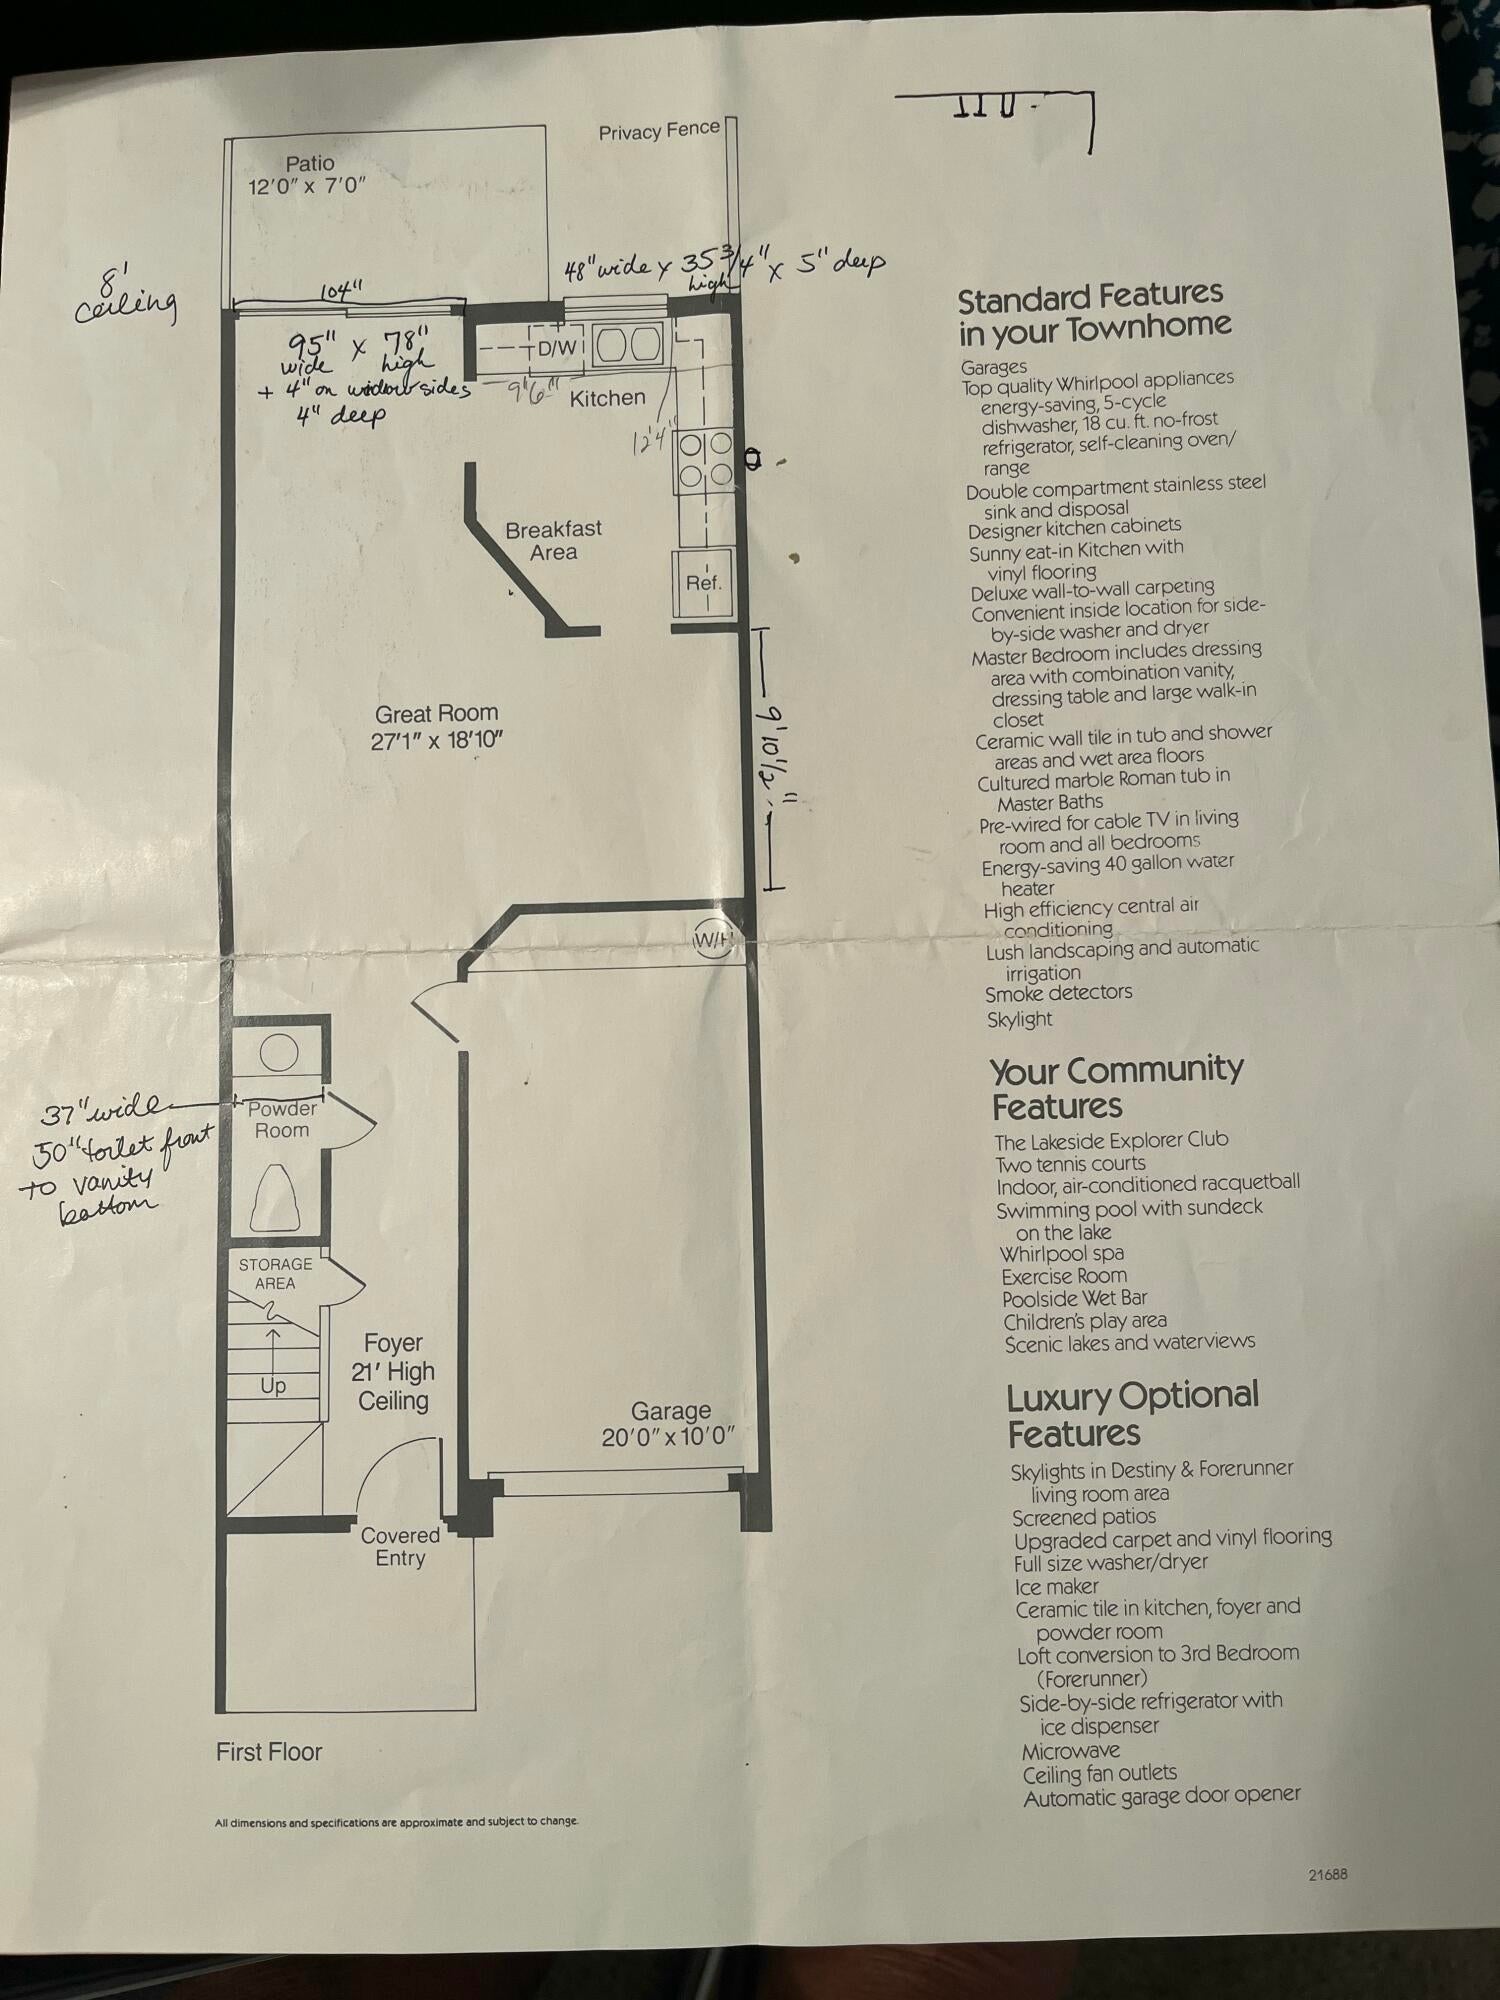 Privacy Fence
Patio
12'0" x 7'0"
48" wide x 35 3/4" x 5" deep
high
8'
ceiling
104"
95" x 78"
wide high
+ 4" on window sides
4" deep
D/W
9'6"
Kitchen
12'4"
Breakfast
Area
Ref.
Great Room
27'1" x 18'10"
9'10 1/2"
W/H
37" wide
50" toilet front
to vanity
bottom
Powder
Room
STORAGE
AREA
Up
Foyer
21' High
Ceiling
Garage
20'0" x 10'0"
Covered
Entry
First Floor
All dimensions and specifications are approximate and subject to change.
Standard Features
in your Townhome
Garages
Top quality Whirlpool appliances
energy-saving, 5-cycle
dishwasher, 18 cu. ft. no-frost
refrigerator, self-cleaning oven/
range
Double compartment stainless steel
sink and disposal
Designer kitchen cabinets
Sunny eat-in Kitchen with
vinyl flooring
Deluxe wall-to-wall carpeting
Convenient inside location for side-
by-side washer and dryer
Master Bedroom includes dressing
area with combination vanity,
dressing table and large walk-in
closet
Ceramic wall tile in tub and shower
areas and wet area floors
Cultured marble Roman tub in
Master Baths
Pre-wired for cable TV in living
room and all bedrooms
Energy-saving 40 gallon water
heater
High efficiency central air
conditioning
Lush landscaping and automatic
irrigation
Smoke detectors
Skylight
Your Community
Features
The Lakeside Explorer Club
Two tennis courts
Indoor, air-conditioned racquetball
Swimming pool with sundeck
on the lake
Whirlpool spa
Exercise Room
Poolside Wet Bar
Children's play area
Scenic lakes and waterviews
Luxury Optional
Features
Skylights in Destiny & Forerunner
living room area
Screened patios
Upgraded carpet and vinyl flooring
Full size washer/dryer
Ice maker
Ceramic tile in kitchen, foyer and
powder room
Loft conversion to 3rd Bedroom
(Forerunner)
Side-by-side refrigerator with
ice dispenser
Microwave
Ceiling fan outlets
Automatic garage door opener
21688